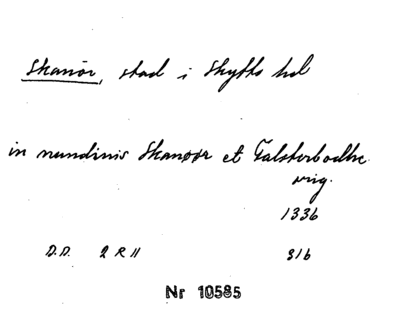 Skanör, stad i Skytts hd
in nundinis Skanøør et Falsterbodhe
orig.
1336
D.D. 2 R 11 316
Nr 10585